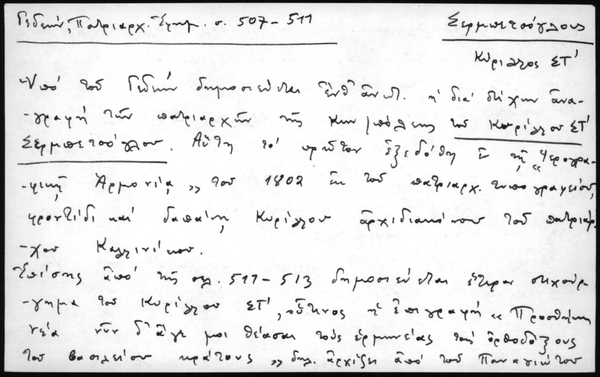 Γεδεών, Πατριαρχ. Ἐφημ. σ. 507-511
Σερμπετσόγλους
Κύριλλος ΣΤ'
Ὑπό τοῦ Γεδεών δημοσιεύεται ἐνθ' ἀνωτ. ἡ διά στίχων ἀνα-
γραφή τῶν πατριαρχῶν τῆς Κων/πόλεως τοῦ Κυρίλλου ΣΤ'
Σερμπετσόγλου. Αὕτη τό πρῶτον ἐξεδόθη ἐν τῇ "Ἱερογρα-
φικῇ Ἁρμονίᾳ" τοῦ 1802 ἐκ τοῦ πατριαρχ. τυπογραφείου,
φροντίδι καί δαπάνῃ Κυρίλλου ἀρχιδιακόνου τοῦ πατριάρ-
χου Καλλινίκου.
Ἐπίσης ἀπό τῆς σελ. 511-513 δημοσιεύεται ἕτερον στιχούρ-
γημα τοῦ Κυρίλλου ΣΤ', οὗτινος ἡ ἐπιγραφή "Προσθήκη
νέα νῦν δ' ἄγε μοι θέασαι τούς ἑρμηνείας τῆς ὀρθοδόξους
τοῦ βασιλείου κράτους" δηλ. ἀρχίζει ἀπό τοῦ Παναγιώτου